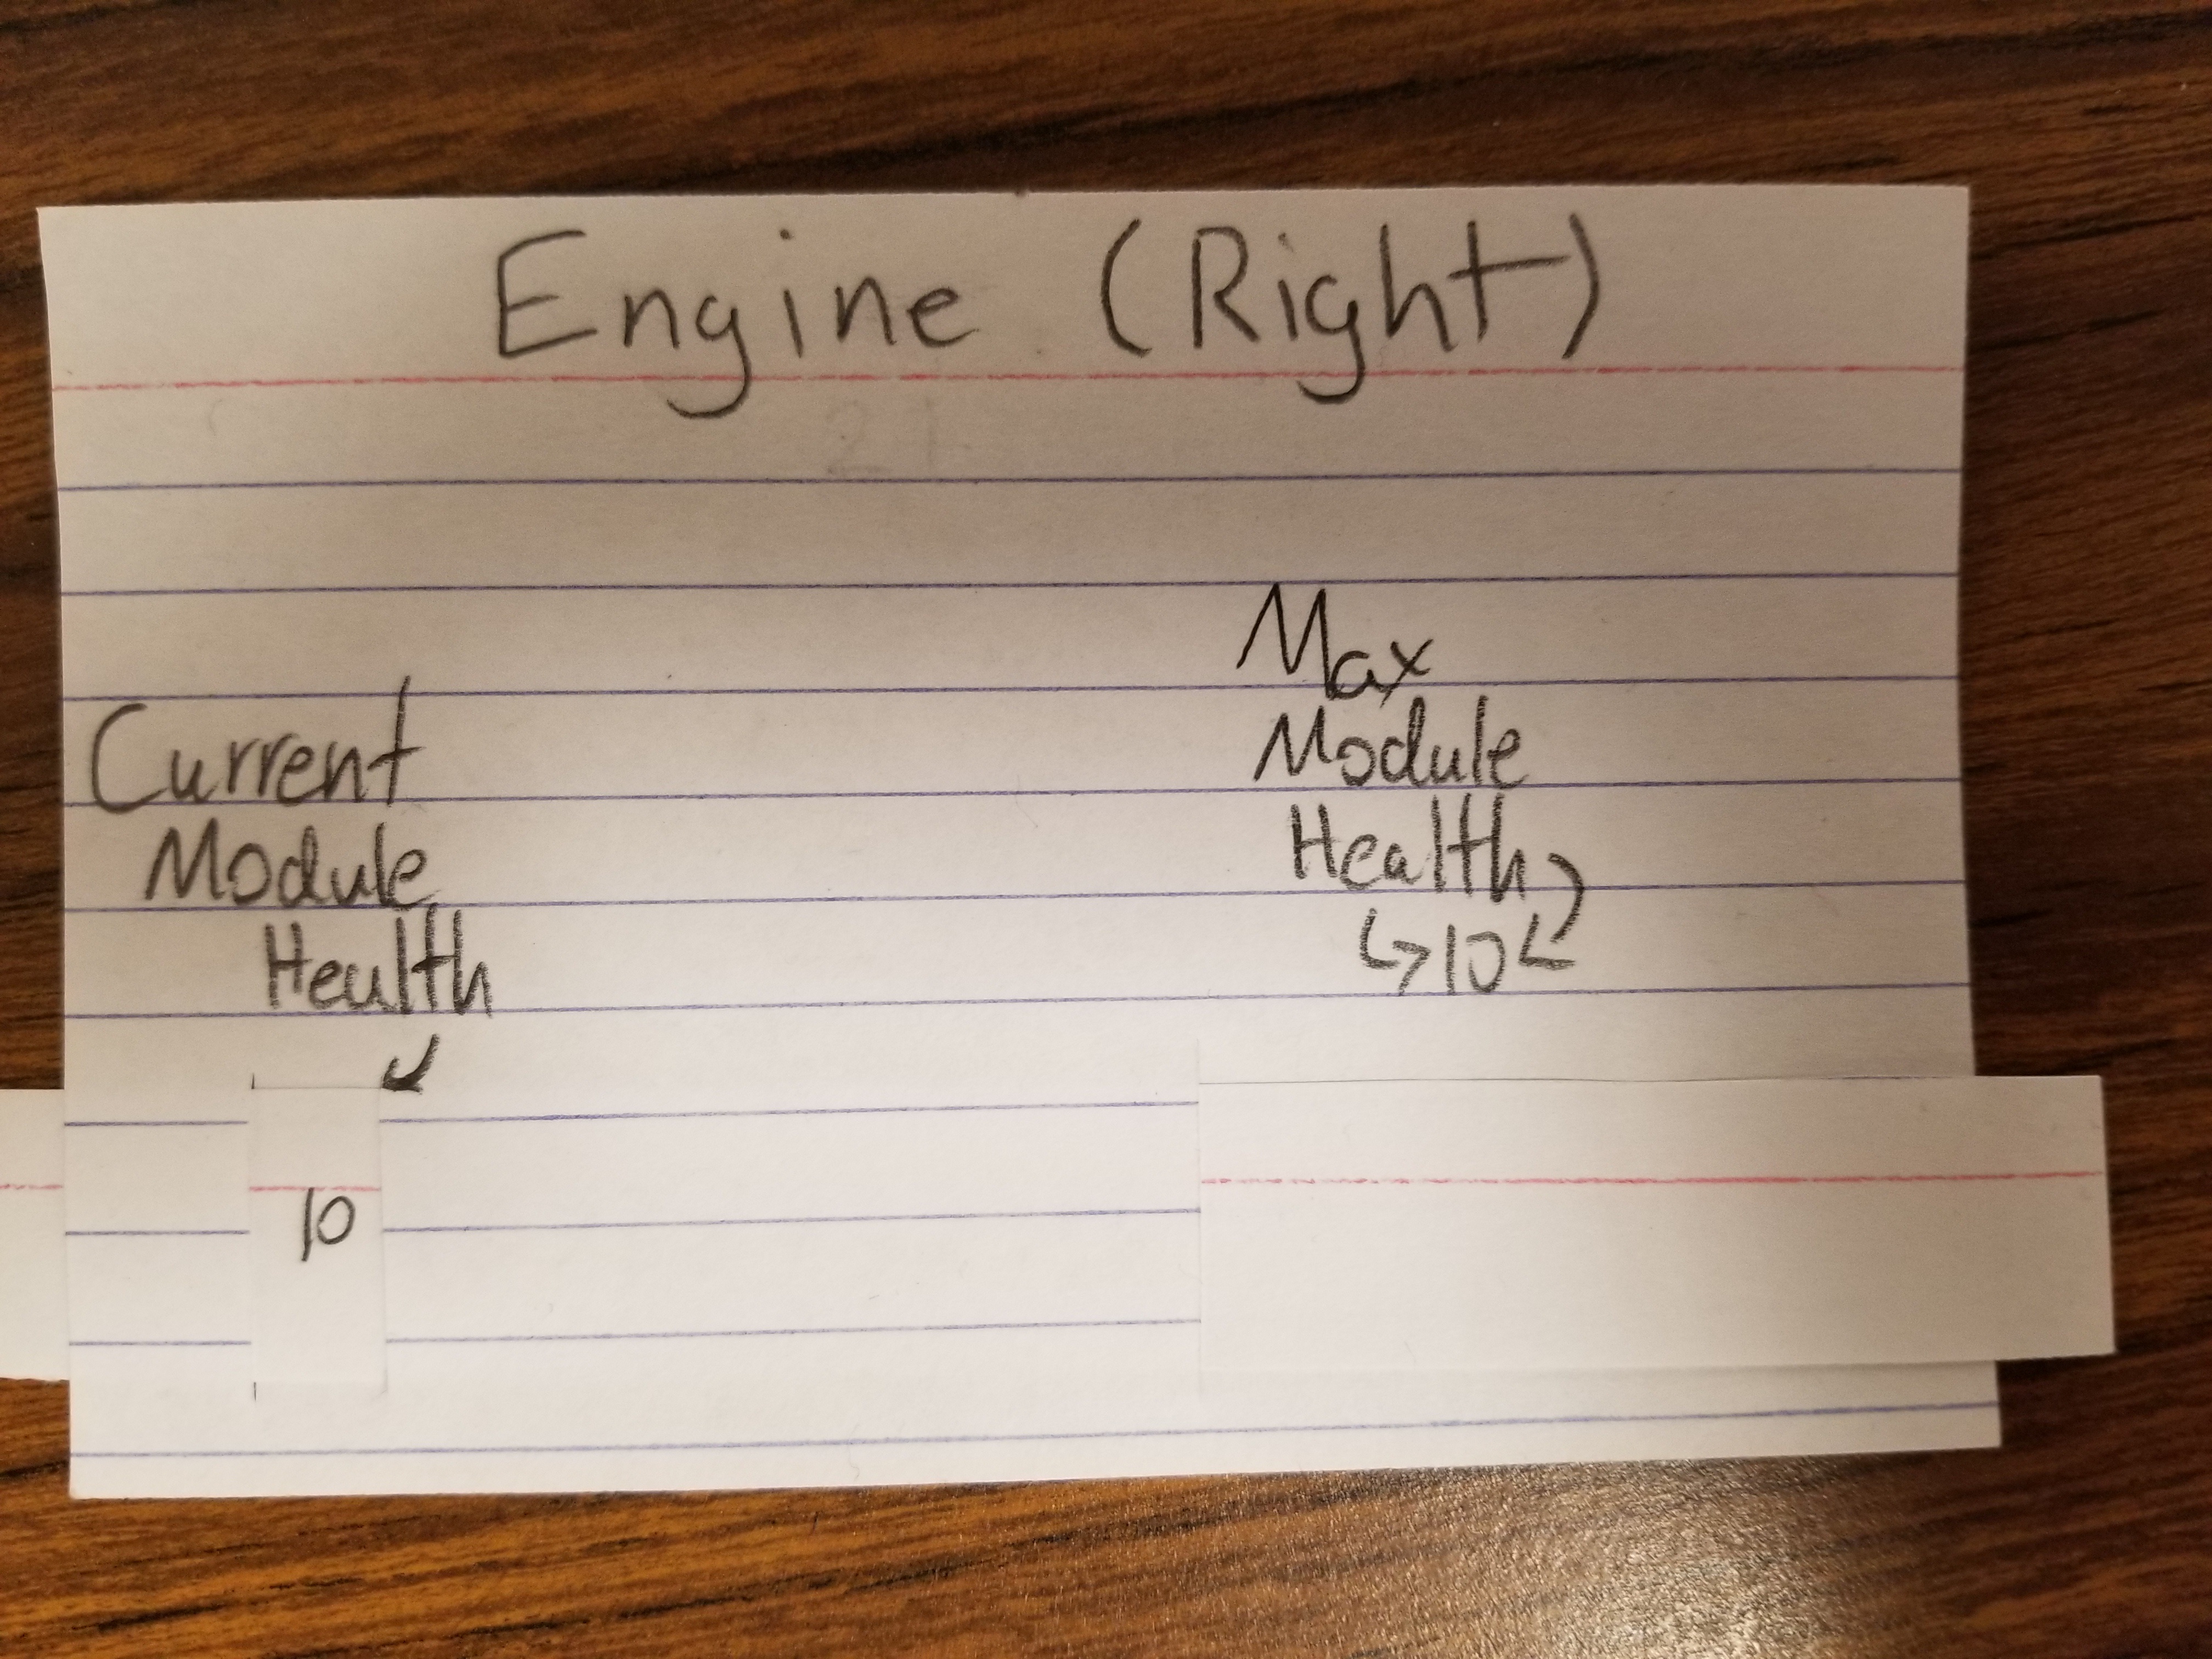 Engine (Right)
21
Current
Module
Health
10
Max
Module
Health
10